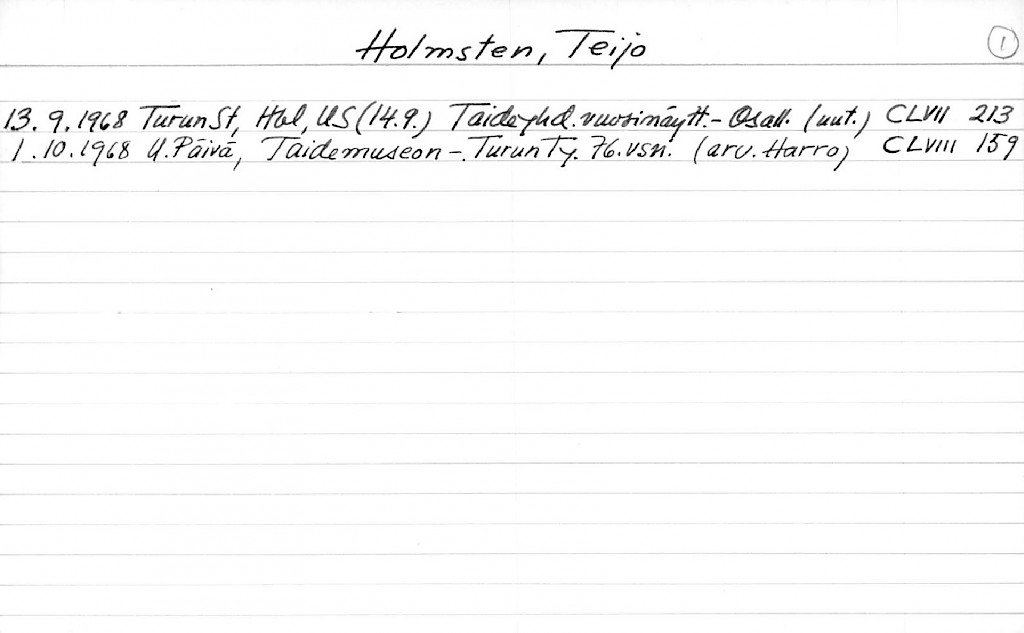 Holmsten, Teijo
1
13.9.1968 Turun St, Hbl, US (14.9.) Taideyhd. vuosinäytt. - Osall. (uut.) CLVII 213
1.10.1968 U. Päivä, Taidemuseon - Turun Ty. 76. vsn. (arv. Harro) CLVIII 159